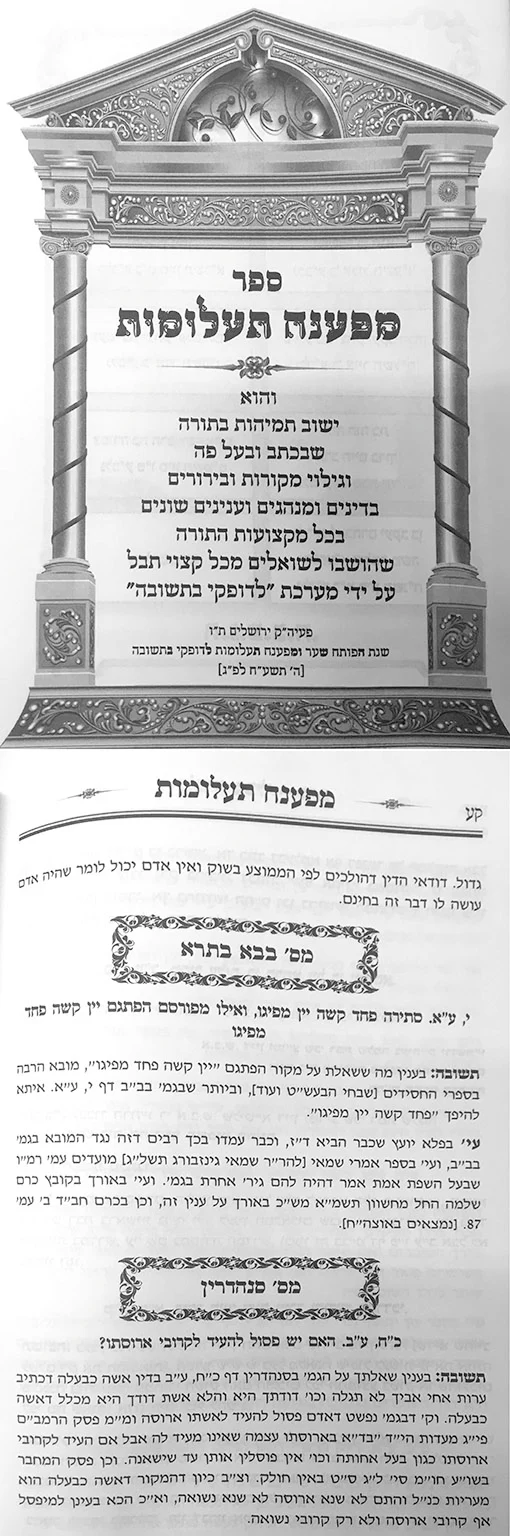 ספר
מפענח תעלומות
והוא
ישוב תמיהות בתורה
שבכתב ובעל פה
וגילוי מקורות ובירורים
בדינים ומנהגים וענינים שונים
בכל מקצועות התורה
שהושבו לשואלים מכל קצוי תבל
על ידי מערכת "לדופקי בתשובה"
פעיה"ק ירושלים ת"ו
שנת הפותח שער ומפענח תעלומות לדופקי בתשובה
[ה' תשע"ח לפ"ג]
קע
מפענח תעלומות
גדול. דודאי הדין דהולכים לפי הממוצע בשוק ואין אדם יכול לומר שהיה אדם
עושה לו דבר זה בחינם.
מס' בבא בתרא
י, ע"א. סתירה פחד קשה יין מפיגו, ואילו מפורסם הפתגם יין קשה פחד
מפיגו
תשובה: בענין מה ששאלת על מקור הפתגם "יין קשה פחד מפיגו", מובא הרבה
בספרי החסידים [שבחי הבעש"ט ועוד], וביותר שבגמ' בב"ב דף י, ע"א. איתא
להיפך "פחד קשה יין מפיגו".
עי' בפלא יועץ שכבר הביא ד"ז, וכבר עמדו בכך רבים דזה נגד המובא בגמ'
בב"ב, ועי' בספר אמרי שמאי [להר"ר שמאי גינזבורג תשל"ג] מועדים עמ' רמ"ו
שבעל השפת אמת אמר דהיה להם גיר' אחרת בגמ'. ועי' באורך בקובץ כרם
שלמה החל מחשוון תשמ"א מש"כ באורך על ענין זה, וכן בכרם חב"ד ב' עמ'
87. [נמצאים באוצה"ח].
מס' סנהדרין
כ"ח, ע"ב. האם יש פסול להעיד לקרובי ארוסתו?
תשובה: בענין שאלתך על הגמ' בסנהדרין דף כ"ח, ע"ב בדין אשה כבעלה דכתיב
ערות אחי אביך לא תגלה וכו' דודתך היא והלא אשת דודך היא מכלל דאשה
כבעלה. וק' דבגמ' נפשט דאדם פסול להעיד לאשתו ארוסה ומ"מ פסק הרמב"ם
פי"ג מעדות הי"ד "בד"א בארוסתו עצמה שאינו מעיד לה אבל אם העיד לקרובי
ארוסתו כגון בעל אחותה וכו' אין פוסלין אותן עד שישאנה. וכן פסק המחבר
בשו"ע חו"מ סי' ל"ג ס"ט באין חולק. וצ"ב כיון דהמקור דאשה כבעלה הוא
מעריות כנ"ל והתם לא שנא ארוסה לא שנא נשואה, וא"כ הכא בעינן למיפסל
אף קרובי ארוסה ולא רק קרובי נשואה.